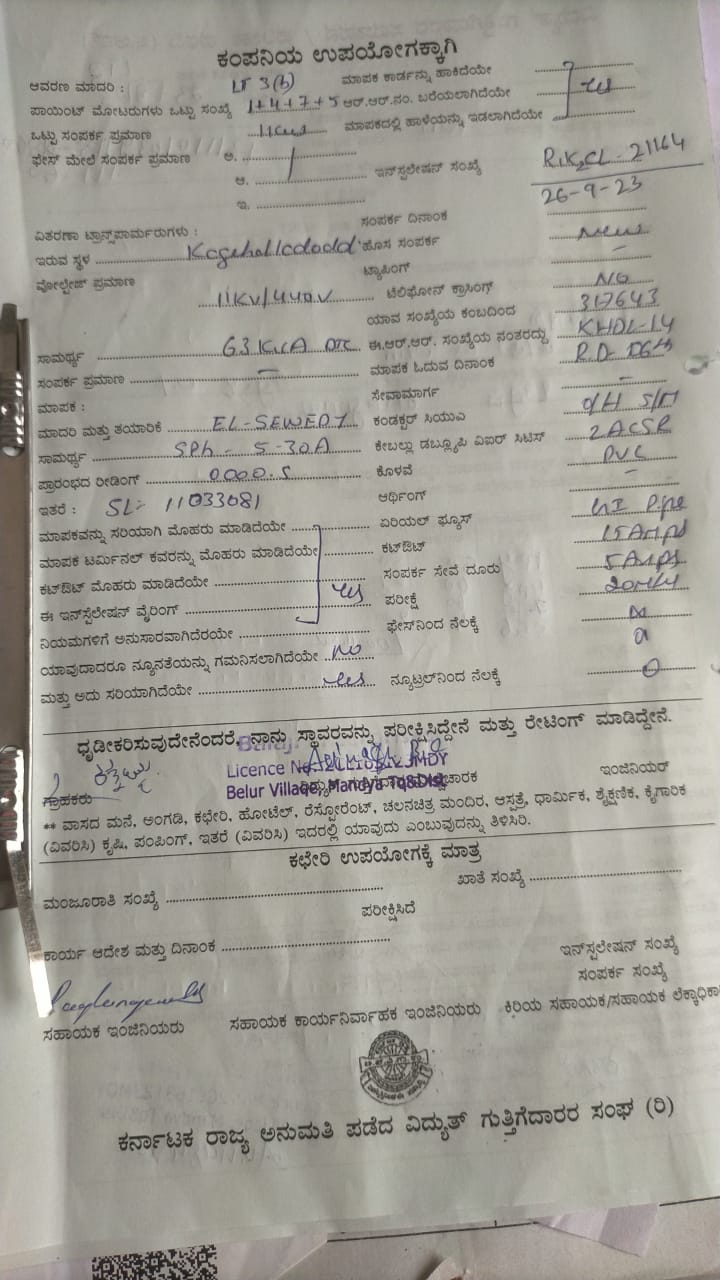 ಕಂಪನಿಯ ಉಪಯೋಗಕ್ಕಾಗಿ
ಆವರಣ ಮಾದರಿ : LT 3(b) ಮಾಪಕ ಕಾರ್ಡನ್ನು ಹಾಕಿದೆಯೇ
ಪಾಯಿಂಟ್ ಮೋಟರುಗಳು ಒಟ್ಟು ಸಂಖ್ಯೆ 1+4+7+5 ಆರ್.ಆರ್.ನಂ. ಬರೆಯಲಾಗಿದೆಯೇ yes
ಒಟ್ಟು ಸಂಪರ್ಕ ಪ್ರಮಾಣ ಮಾಪಕದಲ್ಲಿ ಹಾಳೆಯನ್ನು ಇಡಲಾಗಿದೆಯೇ
ಫೇಸ್ ಮೇಲೆ ಸಂಪರ್ಕ ಪ್ರಮಾಣ ಅ.
ಆ. ಇನ್‌ಸ್ಟಲೇಷನ್ ಸಂಖ್ಯೆ 21164
ಇ. 26-9-23
ವಿತರಣಾ ಟ್ರಾನ್ಸ್‌ಪಾರ್ಮರುಗಳು : ಸಂಪರ್ಕ ದಿನಾಂಕ
ಇರುವ ಸ್ಥಳ ಹೊಸ ಸಂಪರ್ಕ New
ಟ್ಯಾಪಿಂಗ್ –
ವೋಲ್ಟೇಜ್ ಪ್ರಮಾಣ 11KV/440V ಟೆಲಿಫೋನ್ ಕ್ರಾಸಿಂಗ್ NO
ಯಾವ ಸಂಖ್ಯೆಯ ಕಂಬದಿಂದ 317643
ಸಾಮರ್ಥ್ಯ 63 KVA DTC ಈ.ಆರ್.ಆರ್. ಸಂಖ್ಯೆಯ ನಂತರದ್ದು KHDL-14
ಸಂಪರ್ಕ ಪ್ರಮಾಣ – ಮಾಪಕ ಓದುವ ದಿನಾಂಕ
ಮಾಪಕ : ಸೇವಾಮಾರ್ಗ –
ಮಾದರಿ ಮತ್ತು ತಯಾರಿಕೆ EL-SEWEDY ಕಂಡಕ್ಟರ್ ಸಿಯುವಿ O/H S/M
ಸಾಮರ್ಥ್ಯ SPh - 5-30A ಕೇಬಲ್ಲು ಡಬ್ಲ್ಯೂಪಿ ವಿಐರ್ ಸಿಟಿಸ್ 2ACSR
ಪ್ರಾರಂಭದ ರೀಡಿಂಗ್ 0000.5 ಕೊಳವೆ PVC
ಇತರೆ : SL= 11033081 ಆರ್ಥಿಂಗ್ –
ಮಾಪಕವನ್ನು ಸರಿಯಾಗಿ ಮೊಹರು ಮಾಡಿದೆಯೇ ಏರಿಯಲ್ ಫ್ಯೂಸ್ GI Pipe
ಮಾಪಕ ಟರ್ಮಿನಲ್ ಕವರನ್ನು ಮೊಹರು ಮಾಡಿದೆಯೇ ಕಟ್‌ಔಟ್ 15Amps
ಕಟ್‌ಔಟ್ ಮೊಹರು ಮಾಡಿದೆಯೇ ಸಂಪರ್ಕ ಸೇವೆ ದೂರು 5Amps
ಈ ಇನ್‌ಸ್ಟಲೇಷನ್ ವೈರಿಂಗ್ yes ಪರೀಕ್ಷೆ
ನಿಯಮಗಳಿಗೆ ಅನುಸಾರವಾಗಿದೆರಯೇ ಫೇಸ್‌ನಿಂದ ನೆಲಕ್ಕೆ
ಯಾವುದಾದರೂ ನ್ಯೂನತೆಯನ್ನು ಗಮನಿಸಲಾಗಿದೆಯೇ NO
ಮತ್ತು ಅದು ಸರಿಯಾಗಿದೆಯೇ yes ನ್ಯೂಟ್ರಲ್‌ನಿಂದ ನೆಲಕ್ಕೆ 0
ಧೃಡೀಕರಿಸುವುದೇನೆಂದರೆ, ನಾನು ಸ್ಥಾವರವನ್ನು ಪರೀಕ್ಷಿಸಿದ್ದೇನೆ ಮತ್ತು ರೇಟಿಂಗ್ ಮಾಡಿದ್ದೇನೆ.
Licence No JMDY
ಗ್ರಾಹಕರು Belur Village, Mandya Tq&Dist. ಇಂಜಿನಿಯರ್
** ವಾಸದ ಮನೆ, ಅಂಗಡಿ, ಕಛೇರಿ, ಹೋಟೆಲ್, ರೆಸ್ಟೋರೆಂಟ್, ಚಲನಚಿತ್ರ ಮಂದಿರ, ಆಸ್ಪತ್ರೆ, ಧಾರ್ಮಿಕ, ಶೈಕ್ಷಣಿಕ, ಕೈಗಾರಿಕ
(ವಿವರಿಸಿ) ಕೃಷಿ, ಪಂಪಿಂಗ್, ಇತರೆ (ವಿವರಿಸಿ) ಇದರಲ್ಲಿ ಯಾವುದು ಎಂಬುವುದನ್ನು ತಿಳಿಸಿರಿ.
ಕಛೇರಿ ಉಪಯೋಗಕ್ಕೆ ಮಾತ್ರ
ಮಂಜೂರಾತಿ ಸಂಖ್ಯೆ ಖಾತೆ ಸಂಖ್ಯೆ
ಪರೀಕ್ಷಿಸಿದೆ
ಕಾರ್ಯ ಆದೇಶ ಮತ್ತು ದಿನಾಂಕ ಇನ್‌ಸ್ಪಲೇಷನ್ ಸಂಖ್ಯೆ
ಸಂಪರ್ಕ ಸಂಖ್ಯೆ
ಸಹಾಯಕ ಇಂಜಿನಿಯರು ಸಹಾಯಕ ಕಾರ್ಯನಿರ್ವಾಹಕ ಇಂಜಿನಿಯರು ಕಿರಿಯ ಸಹಾಯಕ/ಸಹಾಯಕ ಲೆಕ್ಕಾಧಿಕಾ
ಕರ್ನಾಟಕ ರಾಜ್ಯ ಅನುಮತಿ ಪಡೆದ ವಿದ್ಯುತ್ ಗುತ್ತಿಗೆದಾರರ ಸಂಘ (ರಿ)